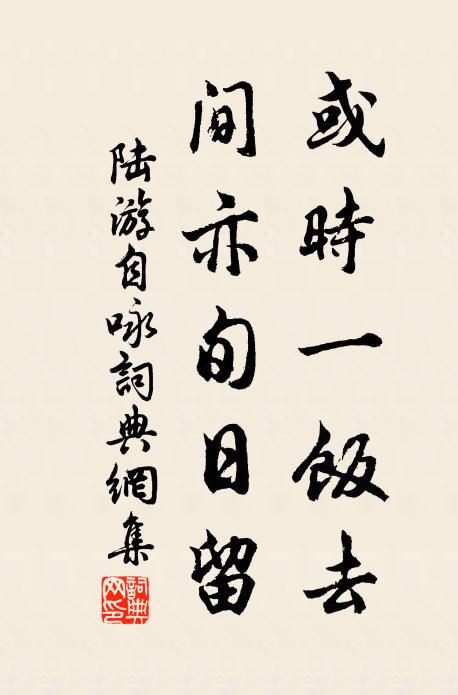 或時一飯去
間亦旬日留
陸游自咏詞典網集
詞典
网印